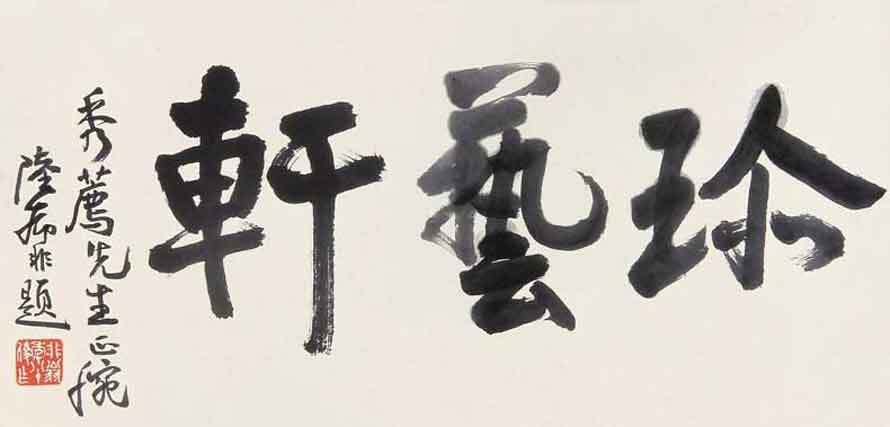 珎藝軒
秀薦先生正腕
陸抑非題